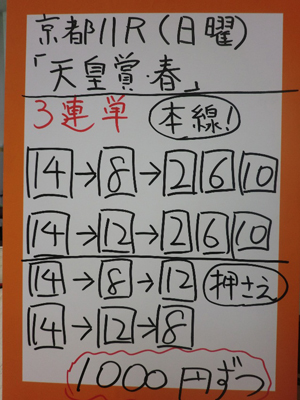 京都11R(日曜)
「天皇賞・春」
3連単 本線!
14→8→2 6 10
14→12→2 6 10
14→8→12 押さえ
14→12→8
1000円ずつ